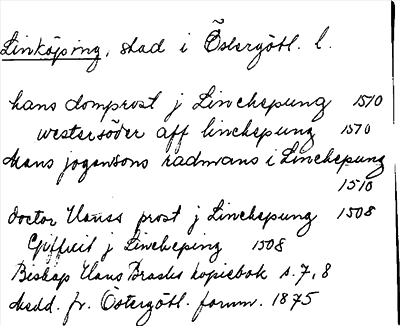 Linköping, stad i Östergötl. l.
hans domprost j Linchepung 1510
westersöder aff linchepung 1510
hans jogensons radmans i Linchepung
1510
doctor Hanss prost j Linchepung 1508
j Lincheping 1508
Biskop Hans Brasks kopiebok s. 7, 8
Medd. fr. Östergötl. fornm. 1875